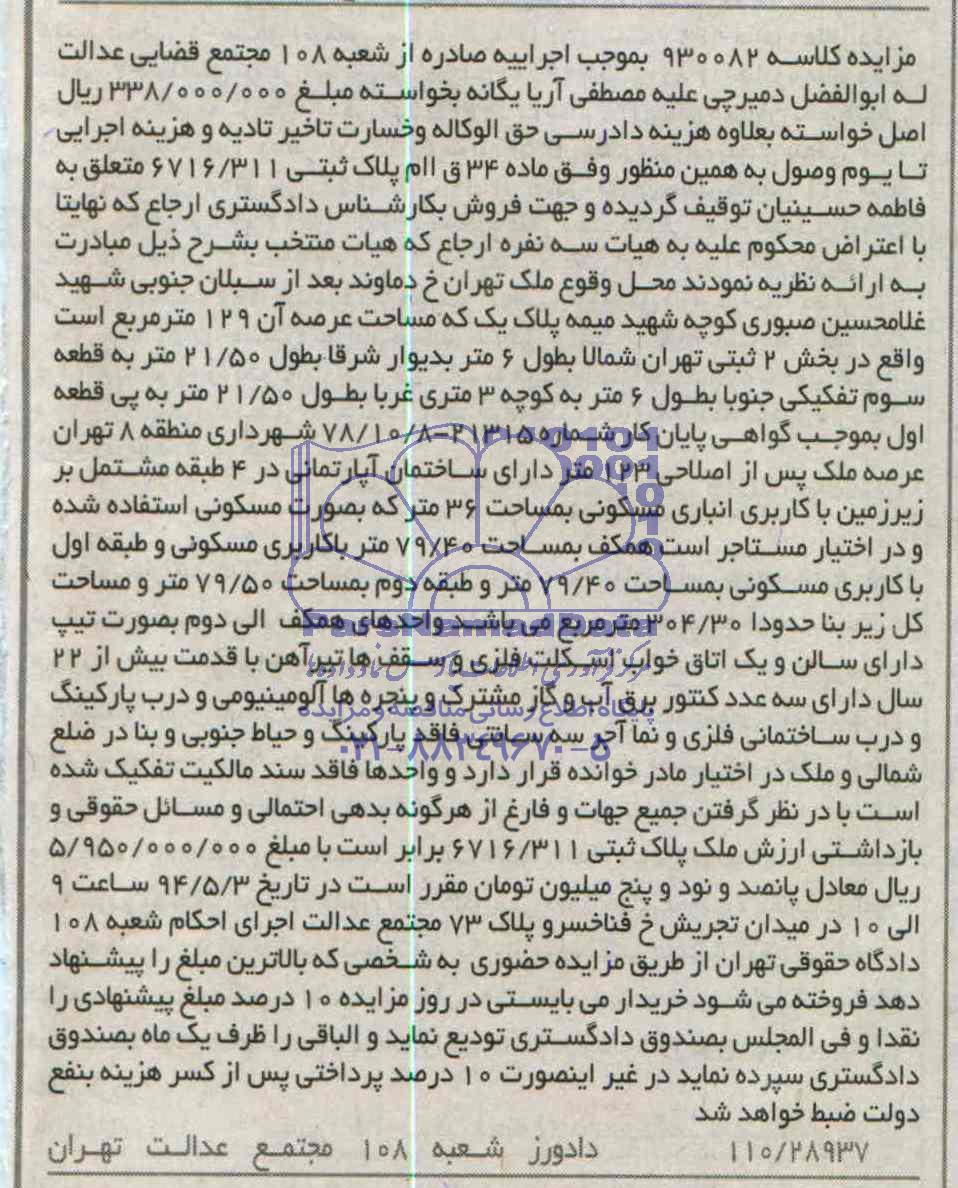 مزایده کلاسه ۹۳۰۰۸۲ بموجب اجراییه صادره از شعبه ۱۰۸ مجتمع قضایی عدالت
له ابوالفضل دمیرچی علیه مصطفی آریا یگانه بخواسته مبلغ ۳۳۸/۰۰۰/۰۰۰ ریال
اصل خواسته بعلاوه هزینه دادرسی حق الوکاله وخسارت تاخیر تادیه و هزینه اجرایی
تا یوم وصول به همین منظور وفق ماده ۳۴ ق اام پلاک ثبتی ۶۷۱۶/۳۱۱ متعلق به
فاطمه حسینیان توقیف گردیده و جهت فروش بکارشناس دادگستری ارجاع که نهایتا
با اعتراض محکوم علیه به هیات سه نفره ارجاع که هیات منتخب بشرح ذیل مبادرت
به ارائه نظریه نمودند محل وقوع ملک تهران خ دماوند بعد از سبلان جنوبی شهید
غلامحسین صبوری کوچه شهید میمه پلاک یک که مساحت عرصه آن ۱۲۹ مترمربع است
واقع در بخش ۲ ثبتی تهران شمالا بطول ۶ متر بدیوار شرقا بطول ۲۱/۵۰ متر به قطعه
سوم تفکیکی جنوبا بطول ۶ متر به کوچه ۳ متری غربا بطول ۲۱/۵۰ متر به پی قطعه
اول بموجب گواهی پایان کار شماره ۲۱۳۱۵-۷۸/۱۰/۸ شهرداری منطقه ۸ تهران
عرصه ملک پس از اصلاحی ۱۲۳ متر دارای ساختمان آپارتمانی در ۴ طبقه مشتمل بر
زیرزمین با کاربری انباری مسکونی بمساحت ۳۶ متر که بصورت مسکونی استفاده شده
و در اختیار مستاجر است همکف بمساحت ۷۹/۴۰ متر باکاربری مسکونی و طبقه اول
با کاربری مسکونی بمساحت ۷۹/۴۰ متر و طبقه دوم بمساحت ۷۹/۵۰ متر و مساحت
کل زیر بنا حدودا ۳۰۴/۳۰ مترمربع می باشد واحدهای همکف الی دوم بصورت تیپ
ParsNamadData
دارای سالن و یک اتاق خواب اسکلت فلزی و سقف ها تیرآهن با قدمت بیش از ۲۲
سال دارای سه عدد کنتور برق آب و گاز مشترک و پنجره ها آلومینیومی و درب پارکینگ
پایگاه اطلاع رسانی مناقصه و مزایده
و درب ساختمانی فلزی و نما آجر سه سانتی فاقد پارکینگ و حیاط جنوبی و بنا در ضلع
۰۲۱-۸۸۳۴۹۶۷۰-۵
شمالی و ملک در اختیار مادر خوانده قرار دارد و واحدها فاقد سند مالکیت تفکیک شده
است با در نظر گرفتن جمیع جهات و فارغ از هرگونه بدهی احتمالی و مسائل حقوقی و
بازداشتی ارزش ملک پلاک ثبتی ۶۷۱۶/۳۱۱ برابر است با مبلغ ۵/۹۵۰/۰۰۰/۰۰۰
ریال معادل پانصد و نود و پنج میلیون تومان مقرر است در تاریخ ۹۴/۵/۳ ساعت ۹
الی ۱۰ در میدان تجریش خ فناخسرو پلاک ۷۳ مجتمع عدالت اجرای احکام شعبه ۱۰۸
دادگاه حقوقی تهران از طریق مزایده حضوری به شخصی که بالاترین مبلغ را پیشنهاد
دهد فروخته می شود خریدار می بایستی در روز مزایده ۱۰ درصد مبلغ پیشنهادی را
نقدا و فی المجلس بصندوق دادگستری تودیع نماید و الباقی را ظرف یک ماه بصندوق
دادگستری سپرده نماید در غیر اینصورت ۱۰ درصد پرداختی پس از کسر هزینه بنفع
دولت ضبط خواهد شد
۱۱۰/۲۸۹۳۷ دادورز شعبه ۱۰۸ مجتمع عدالت تهران